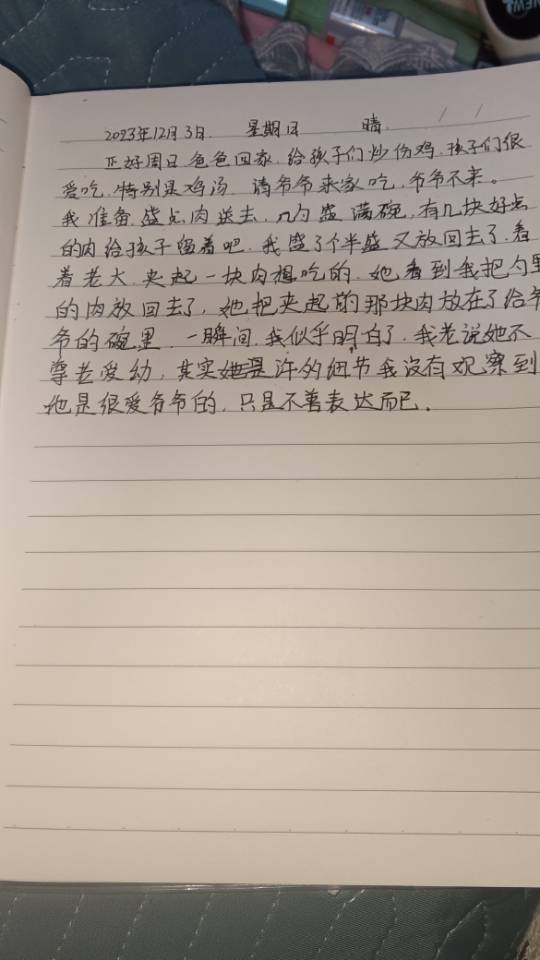 NEW
2023年12月3日 星期日 晴
正好周日爸爸回家.给孩子们炒伤鸡.孩子们很
爱吃.特别是鸡汤.请爷爷来家吃.爷爷不来。
我准备盛点肉送去.几勺盛满碗,有几块好点
的肉给孩子留着吧.我盛了个半盛又放回去了.看
着老大夹起一块肉想吃的.她看到我把勺里
的肉放回去了,她把夹起的那块肉放在了给爷
爷的碗里.一瞬间.我似乎明白了.我老说她不
尊老爱幼,其实她许多的细节我没有观察到
她是很爱爷爷的,只是不善表达而已.